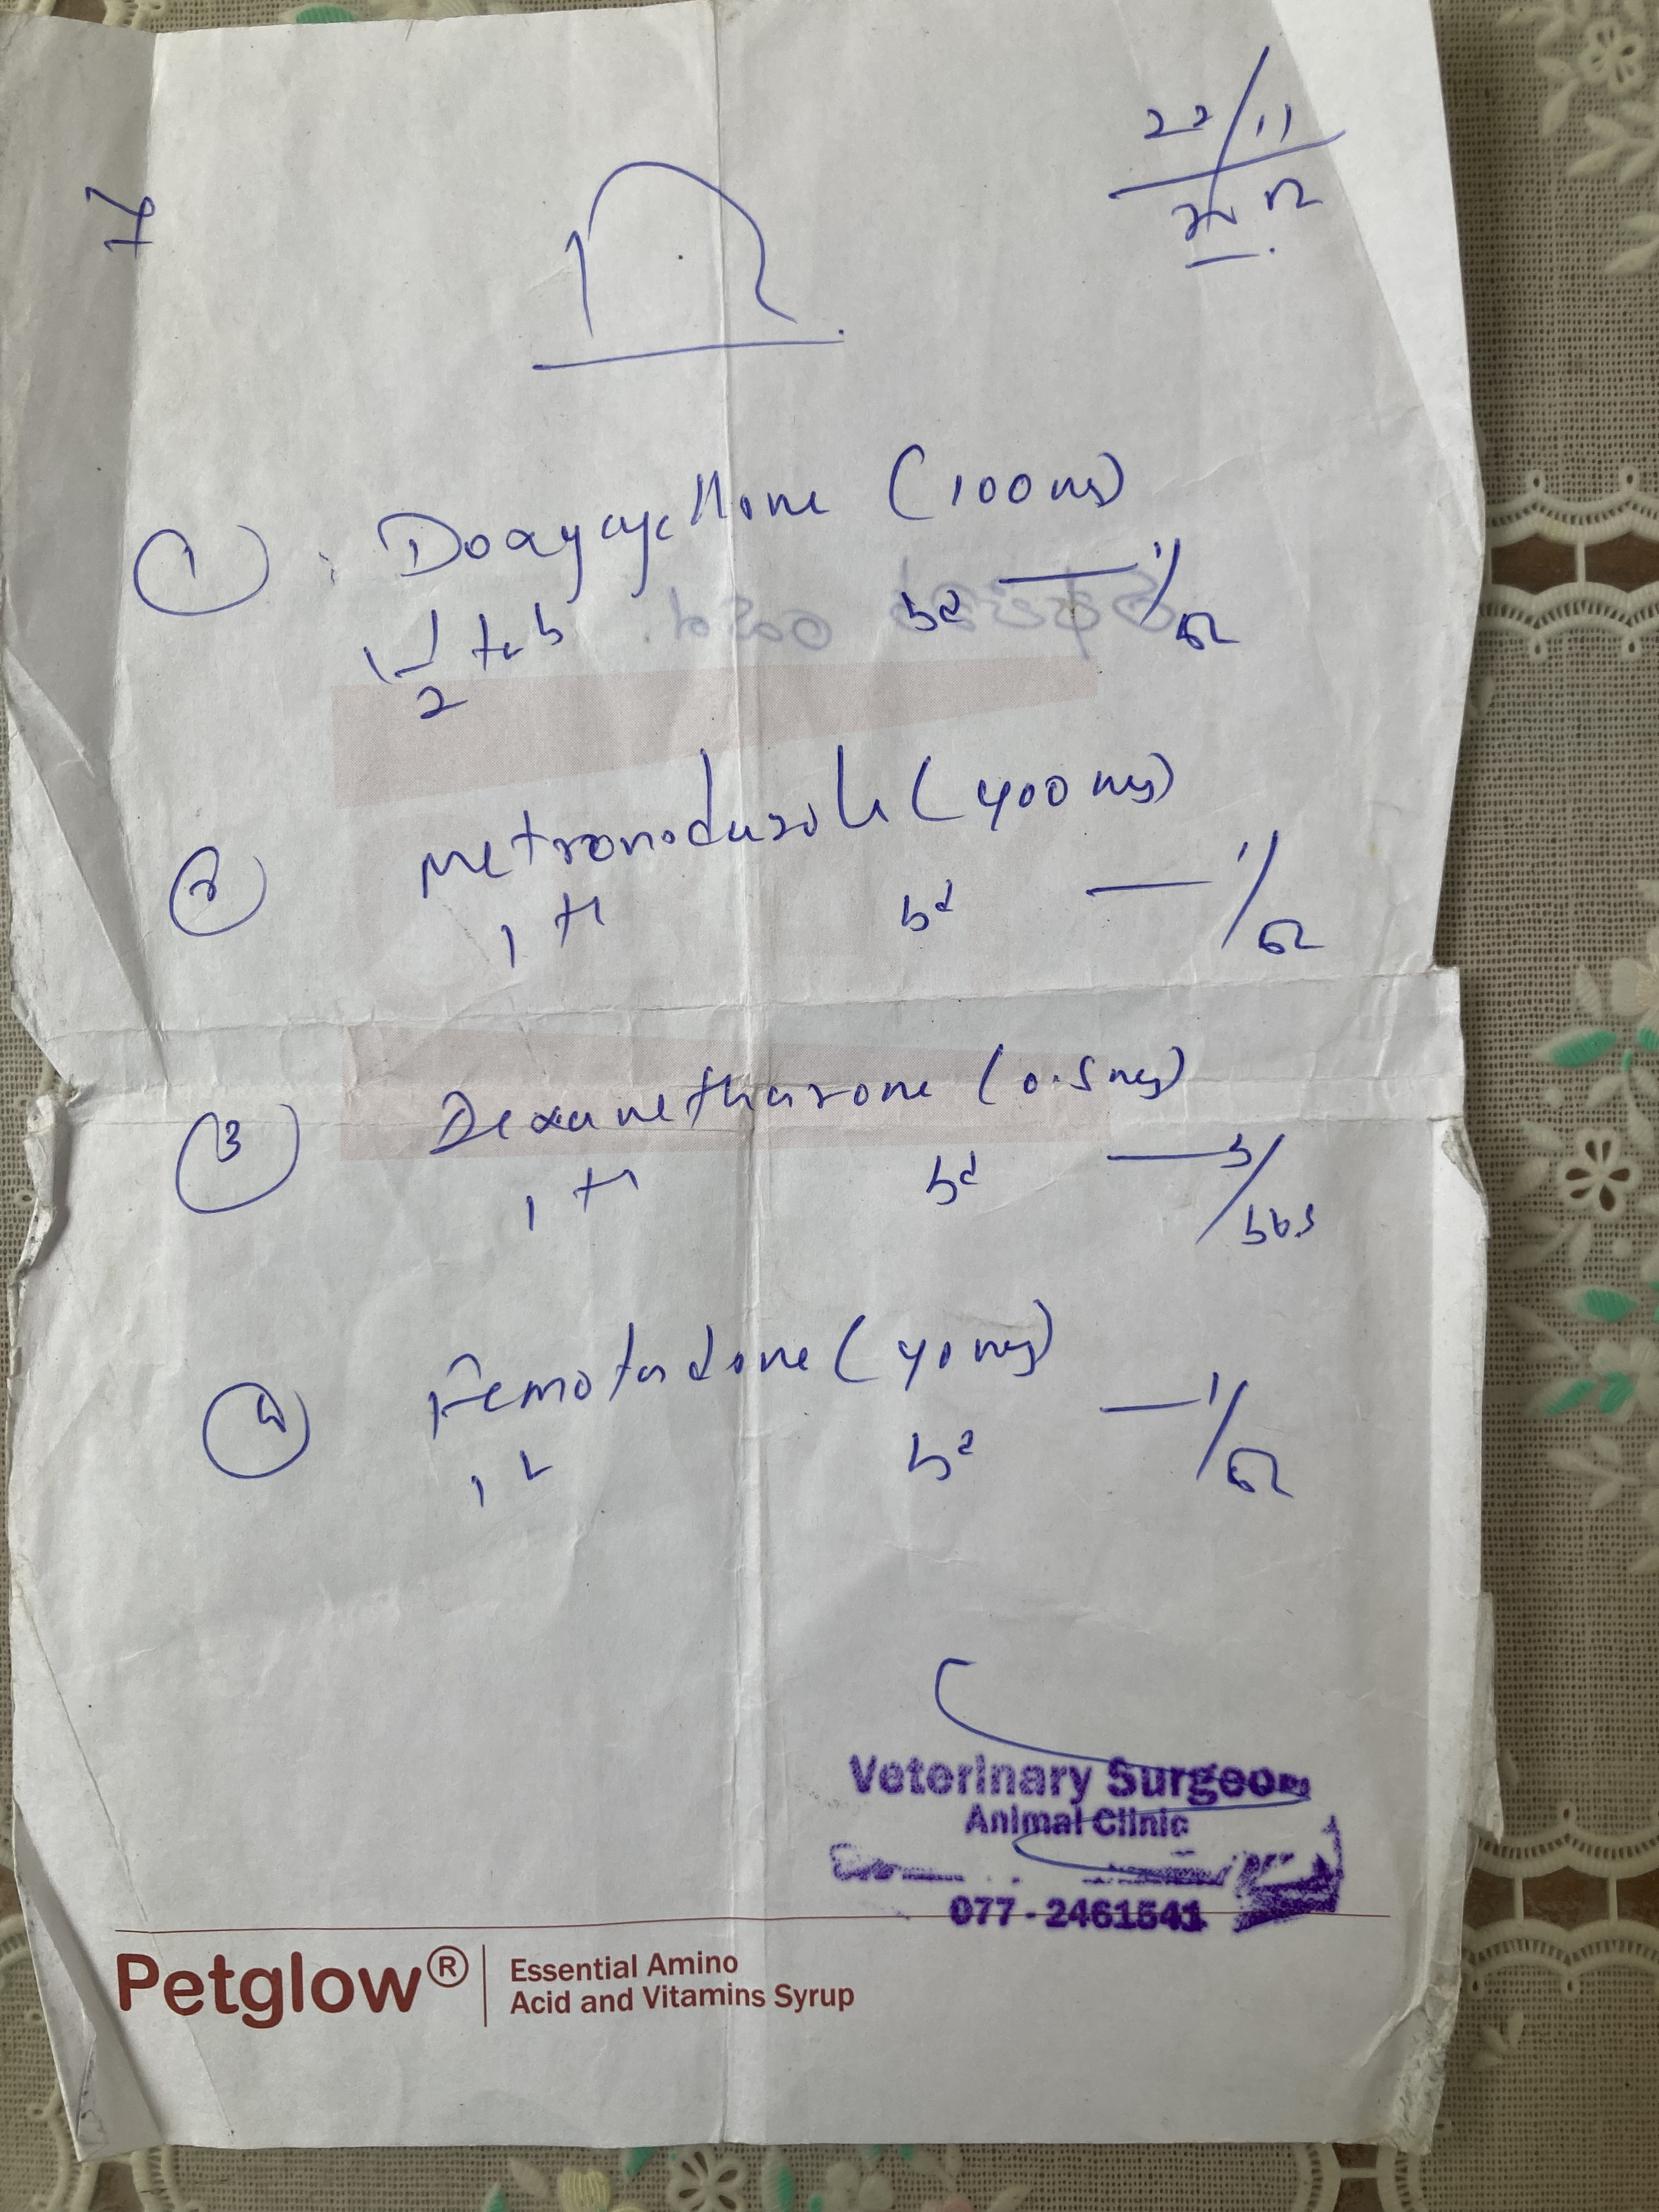 22/11
①: Doxycycllone (100mg)
1 1/2 tab bd — 1/52
② Metronodazole (400mg)
1 bd — 1/52
③ Dexamethasone (0.5mg)
1 bd — 3/
④ Femotadine (40mg)
1 bd — 1/52
Veterinary Surgeon
Animal Clinic
077-2461541
Petglow® Essential Amino
Acid and Vitamins Syrup